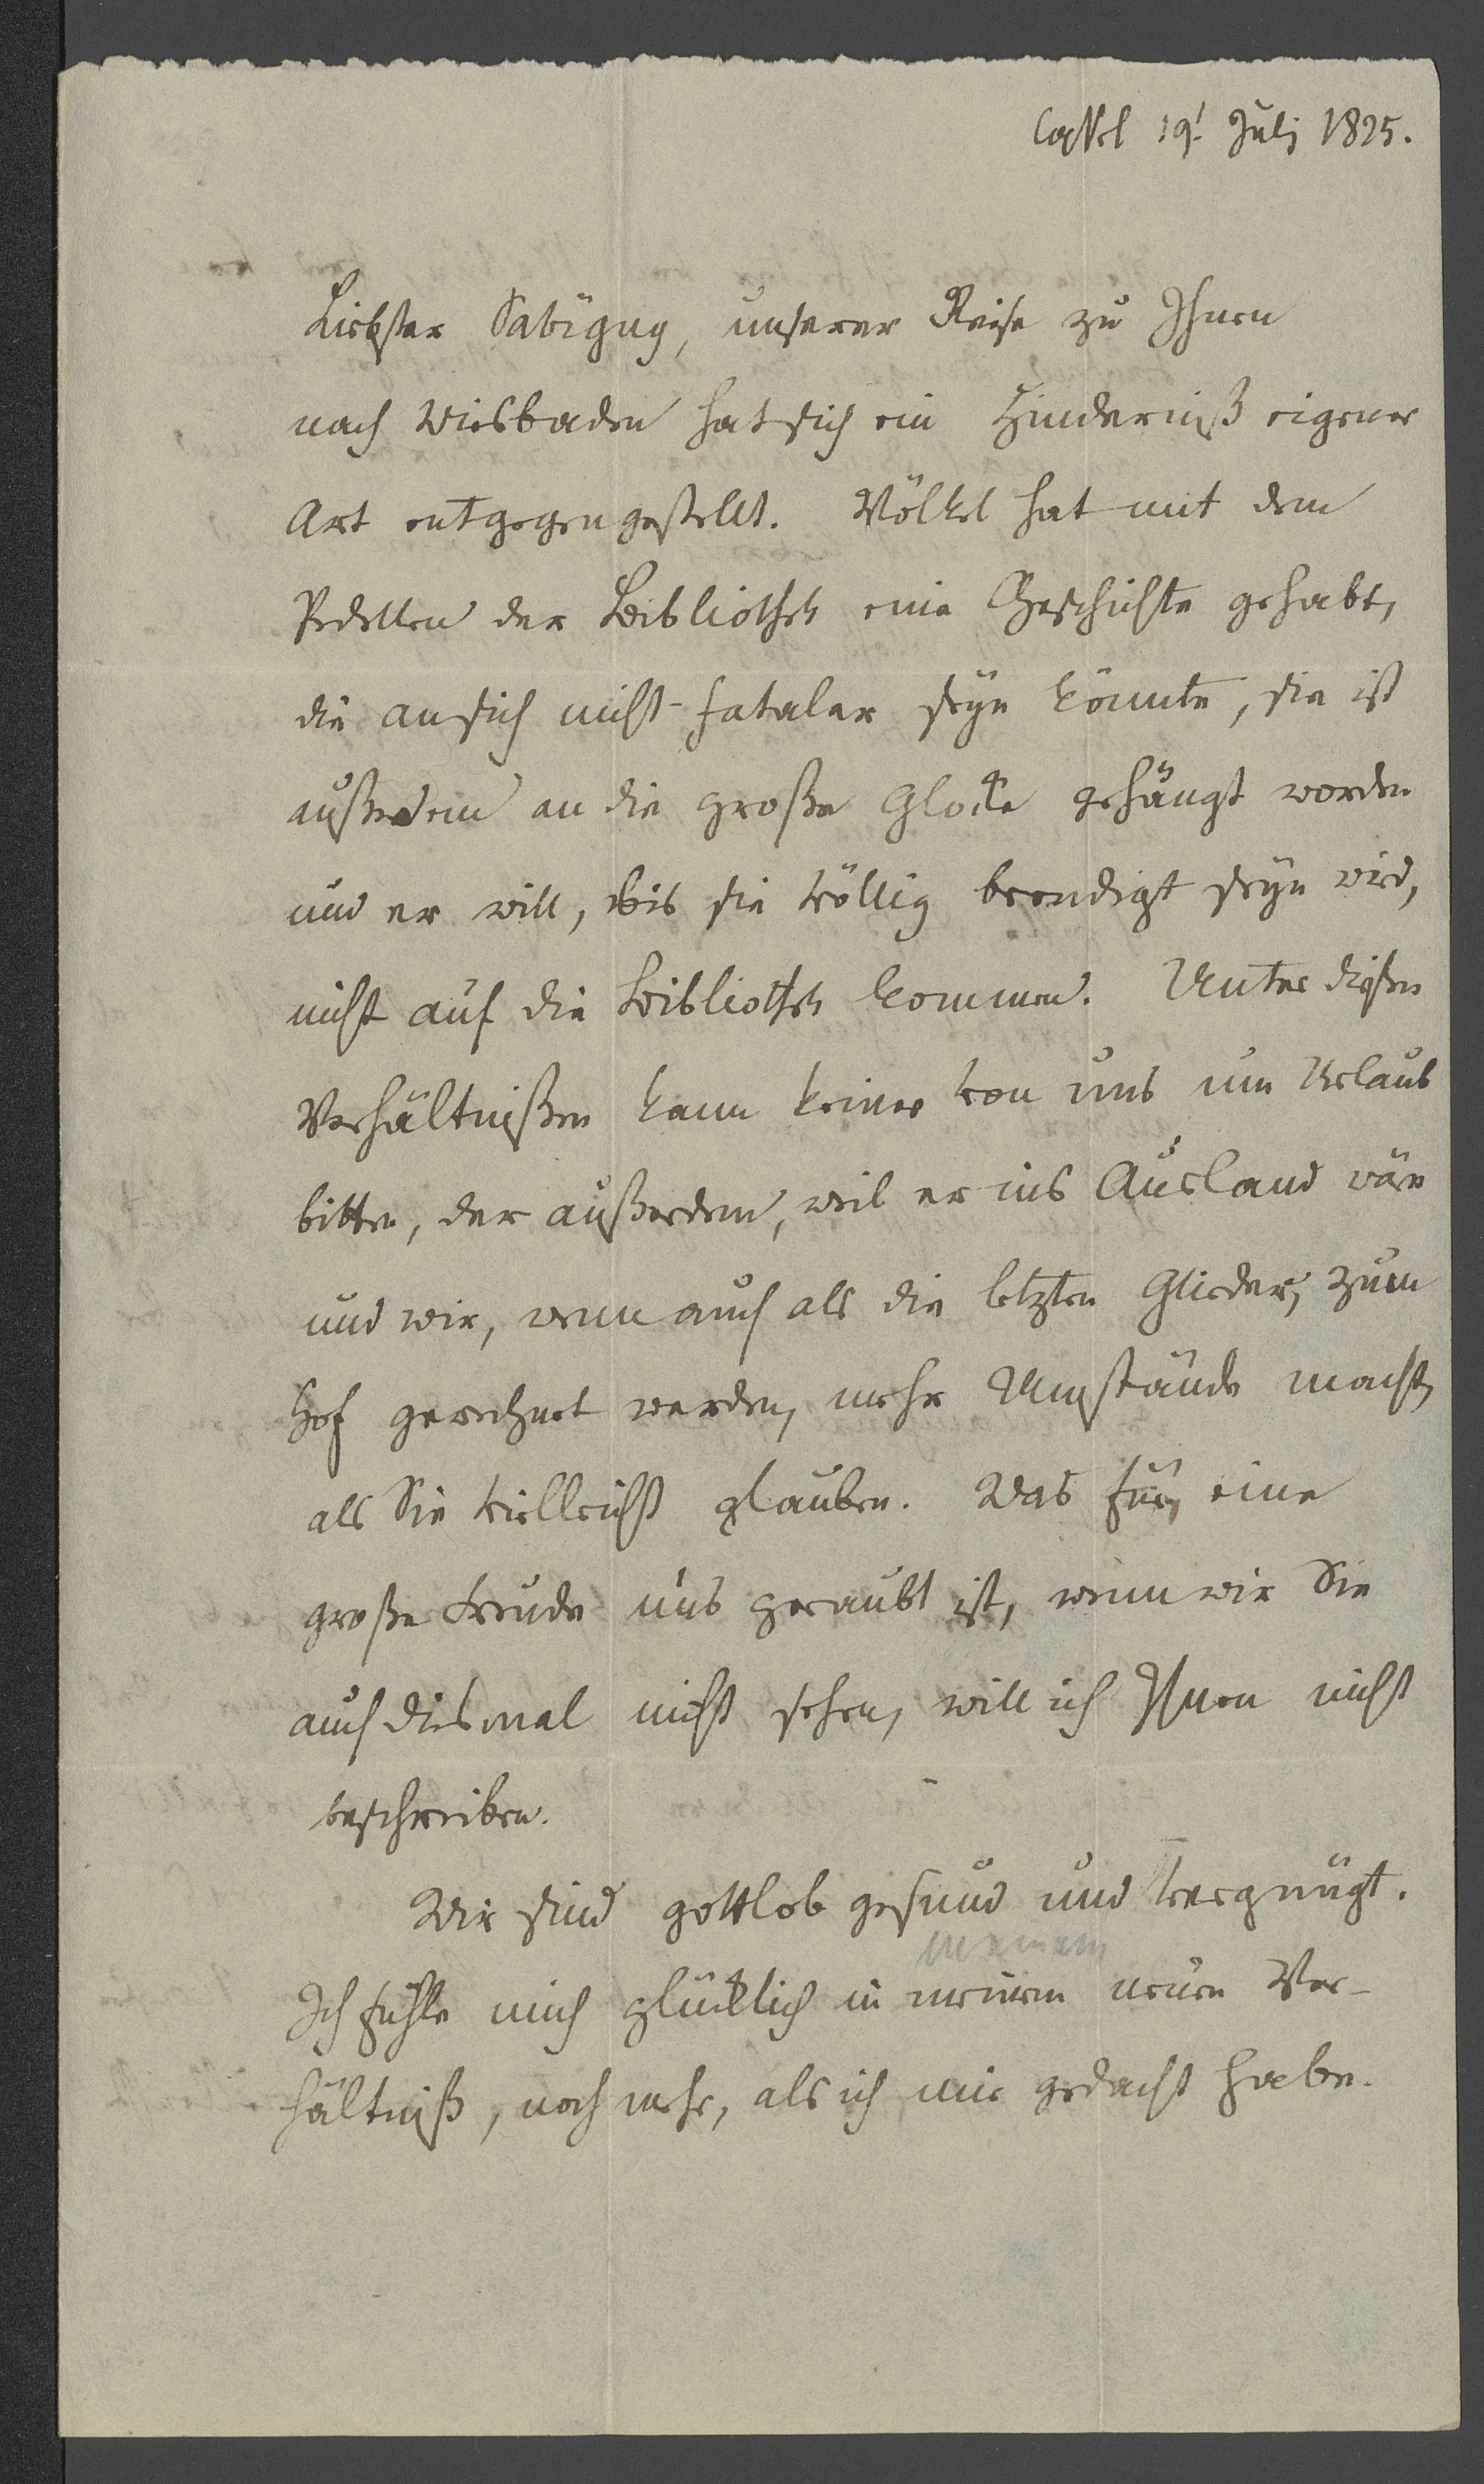 Cassel 19t Juli 1825.
Liebster Savigny, unserer Reise zu Ihnen
nach Wiesbaden hat sich ein Hinderniß eigener
Art entgegengestellt. Völkel hat mit dem
Pedellen der Bibliothek eine Geschichte gehabt,
die an sich nicht fataler seyn könnte, sie ist
außerdem an die große Glocke gehängt worden
und er will, bis sie völlig beendigt seyn wird,
nicht auf die Bibliothek kommen. Unter diesen
Verhältnißen kann keiner von uns um Urlaub
bitten, der außerdem, weil er ins Ausland wär
und wir, wenn auch als die letzten Glieder, zum
Hof gerechnet werden, mehr Umstände macht,
als Sie vielleicht glauben. Was für eine
große Freude uns geraubt ist, wenn wir Sie
auch diesmal nicht sehen, will ich Ihnen nicht
beschreiben.
Wir sind gottlob gesund und vergnügt.
meinem
Ich fühle mich glücklich in meinem neuen Ver-
hältniß, noch mehr, als ich mir gedacht habe.